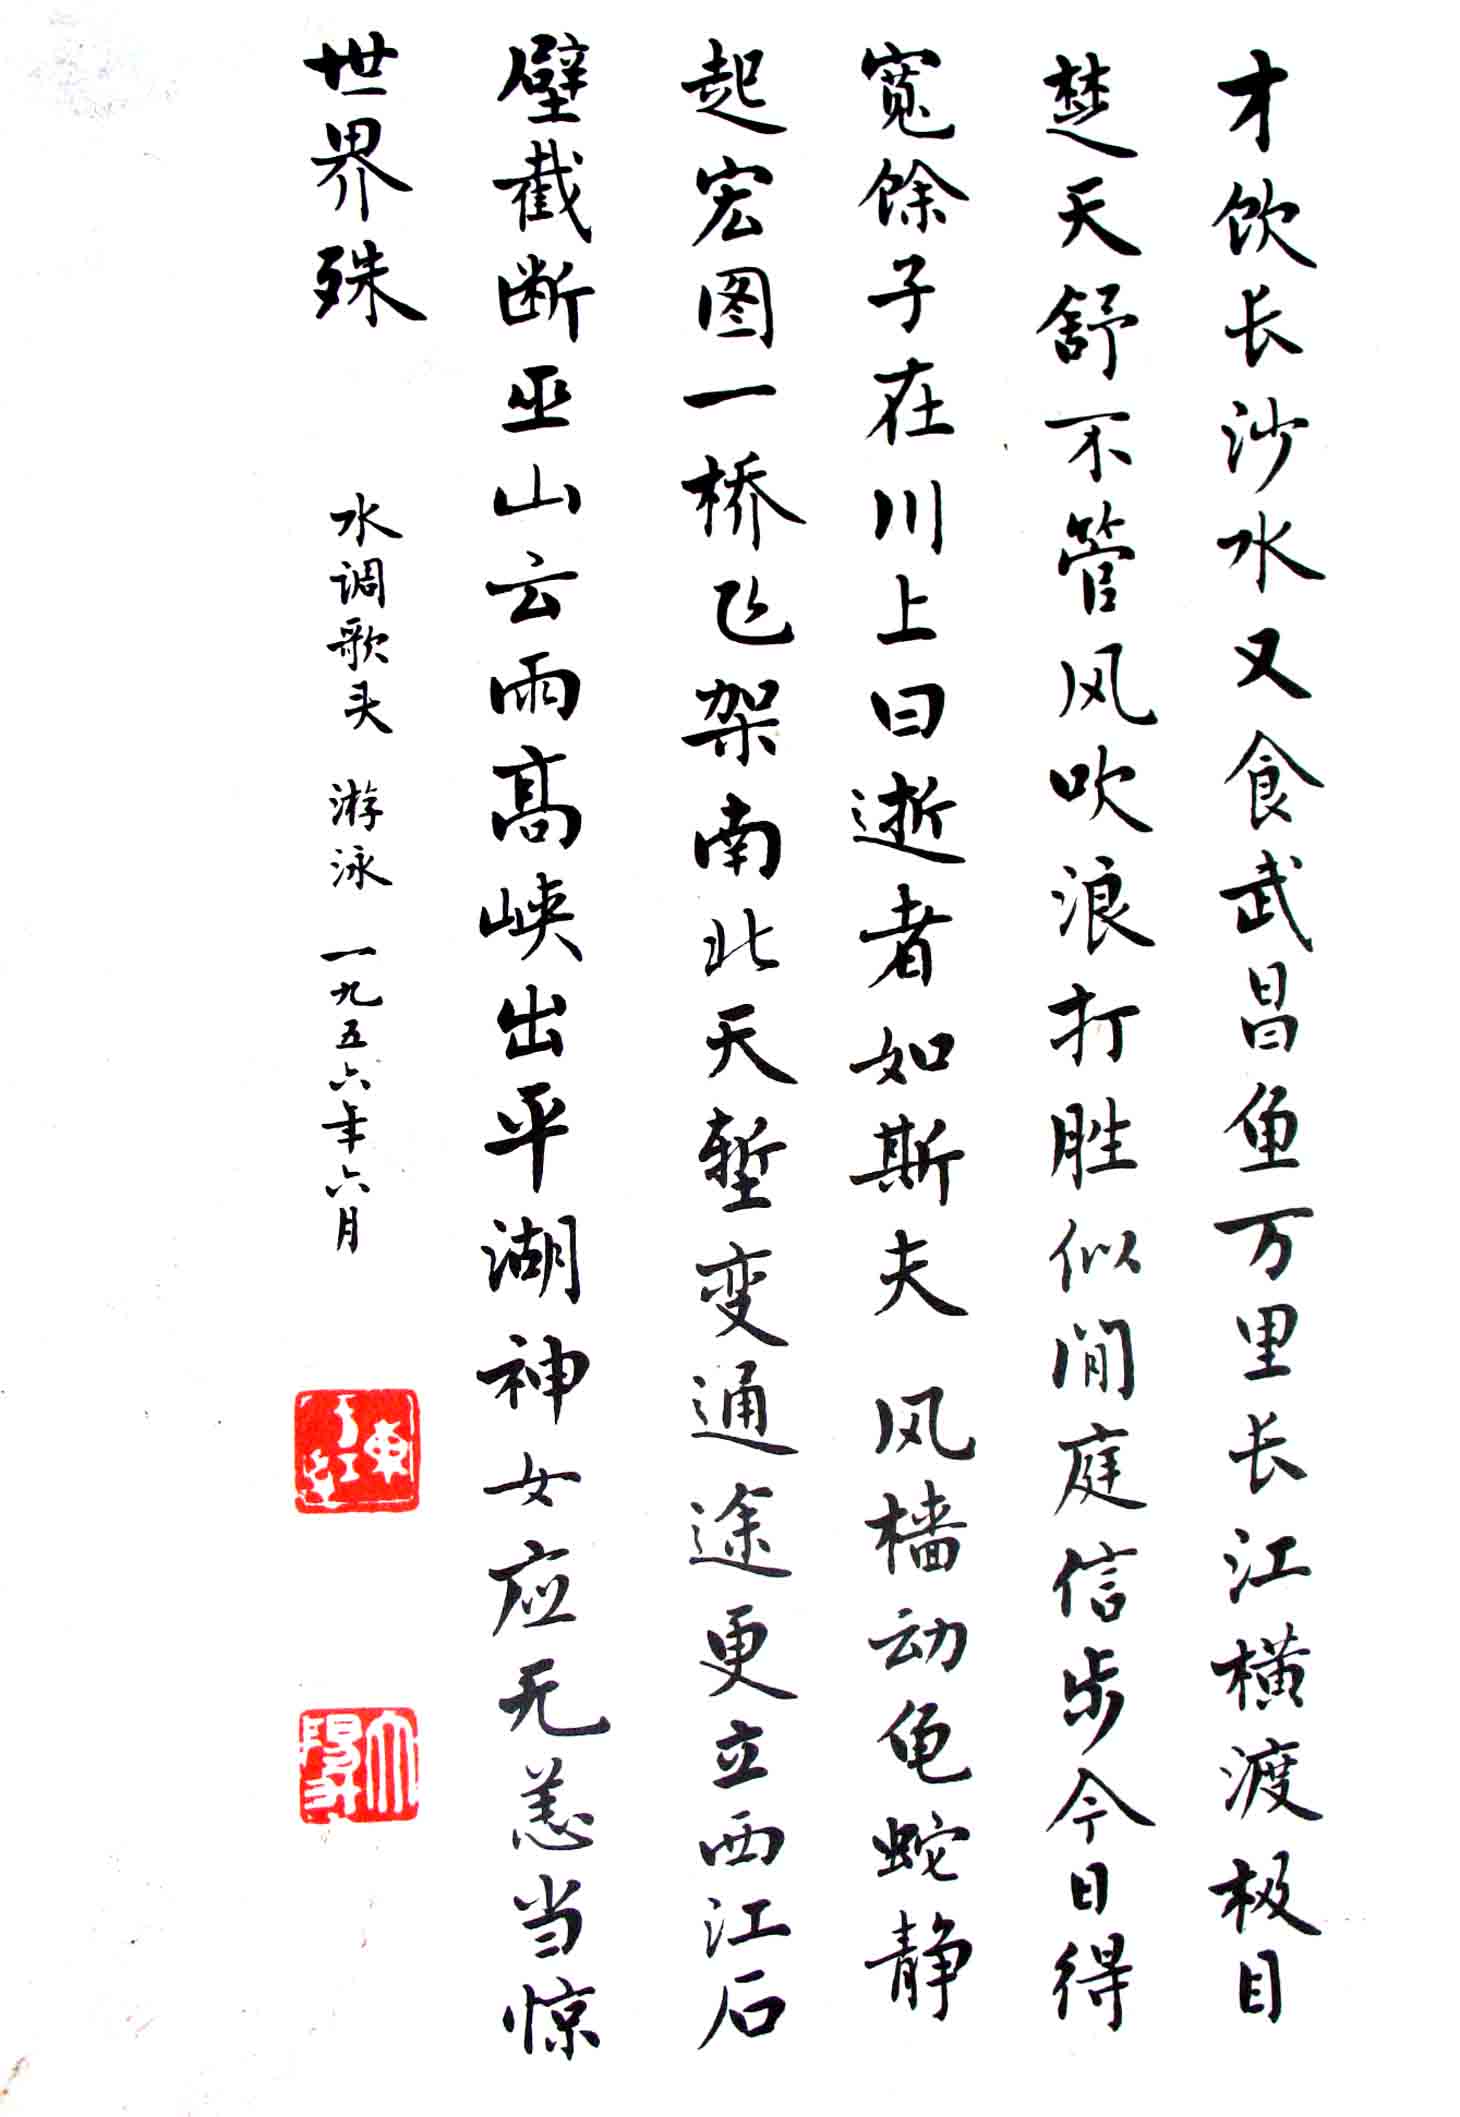 才饮长沙水又食武昌鱼万里长江横渡极目
楚天舒不管风吹浪打胜似闲庭信步今日得
寬馀子在川上曰逝者如斯夫 风樯动龟蛇静
起宏图一桥飞架南北天堑变通途更立西江石
壁截断巫山云雨高峡出平湖神女应无恙当惊
世界殊
水调歌头 游泳 一九五六年六月